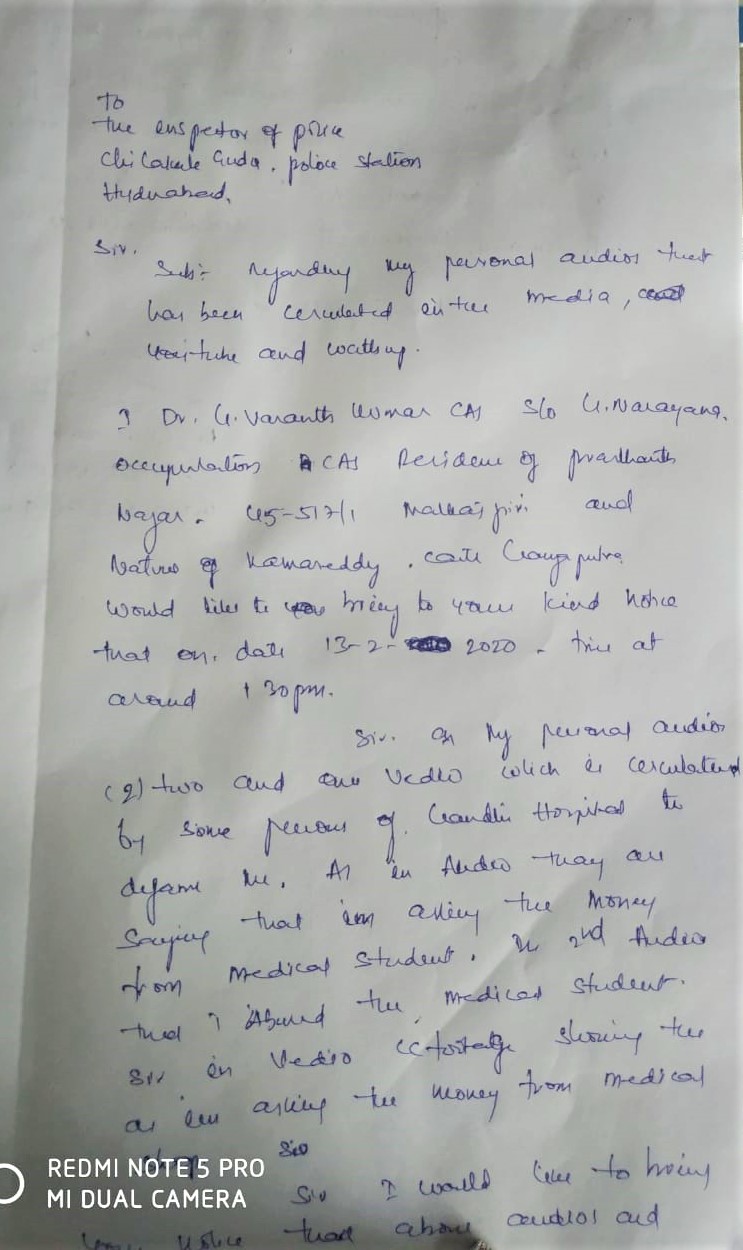 To
the enspector of police
Chilakale Guda. police station
Hyderabad,
Sir.
Sub:- regarding my personal audios that
has been cerculated in the media,
youtube and
I Dr. G. Vasanth Kumar CAS S/o G. Narayana.
occupation CAS Resident of prashanth
Nagar. 45-517/1 Malkajgiri and
Native of Kamareddy.
would like to bring to your kind notice
that on. date 13-2- 2020 - time at
around 1 30pm.
Sir. on My personal audios
(2) two and one Vedeo which is cerculated
by some persons of. Gandhi Hospital to
defame me. As in Audeo they are
Saying that im asking the Money
from Medical Student. In 2nd Audeo
that I Abused the medical student.
Sir in Vedeo showing the
as im asking the money from medical
Sir
Sir I would like to bring
your notice that above audios and
REDMI NOTE 5 PRO
MI DUAL CAMERA